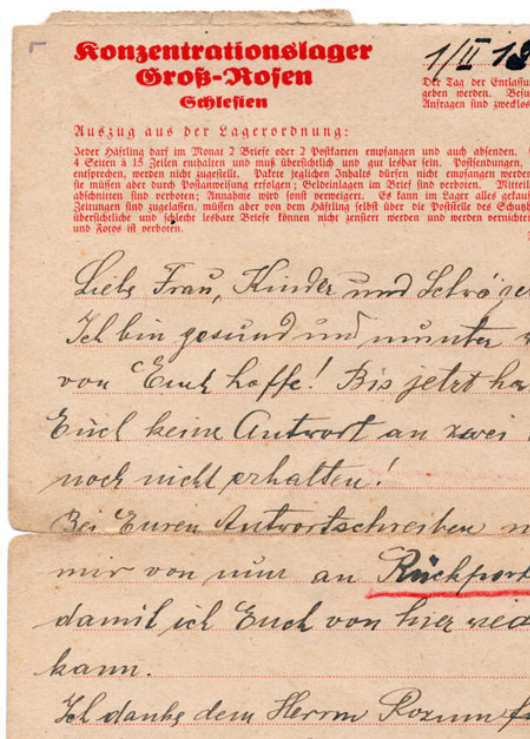 Konzentrationslager
Groß-Rosen
Schlesien
1/II 19
Der Tag der Entlassu
geben werden. Besu
Anfragen sind zwecklos
Auszug aus der Lagerordnung:
Jeder Häftling darf im Monat 2 Briefe oder 2 Postkarten empfangen und auch absenden.
4 Seiten à 15 Zeilen enthalten und muß übersichtlich und gut lesbar sein. Postsendungen,
entsprechen, werden nicht zugestellt. Pakete jeglichen Inhalts dürfen nicht empfangen werden
sie müssen aber durch Postanweisung erfolgen; Geldeinlagen im Brief sind verboten. Mitteil
abschnitten sind verboten; Annahme wird sonst verweigert. Es kann im Lager alles gekauf
Zeitungen sind zugelassen, müssen aber von dem Häftling selbst über die Poststelle des Schutzh
übersichtliche und schlecht lesbare Briefe können nicht zensiert werden und werden vernichtet
und Fotos ist verboten.
Liebe Frau, Kinder und Schwä
Ich bin gesund und munter
von Euch hoffe! Bis jetzt ha
Euch keine Antwort an zwei
noch nicht erhalten!
Bei Euren Antwortschreiben
mir von nun an Rückport
damit ich Euch von hier wied
kann.
Ich danke dem Herrn Rozum